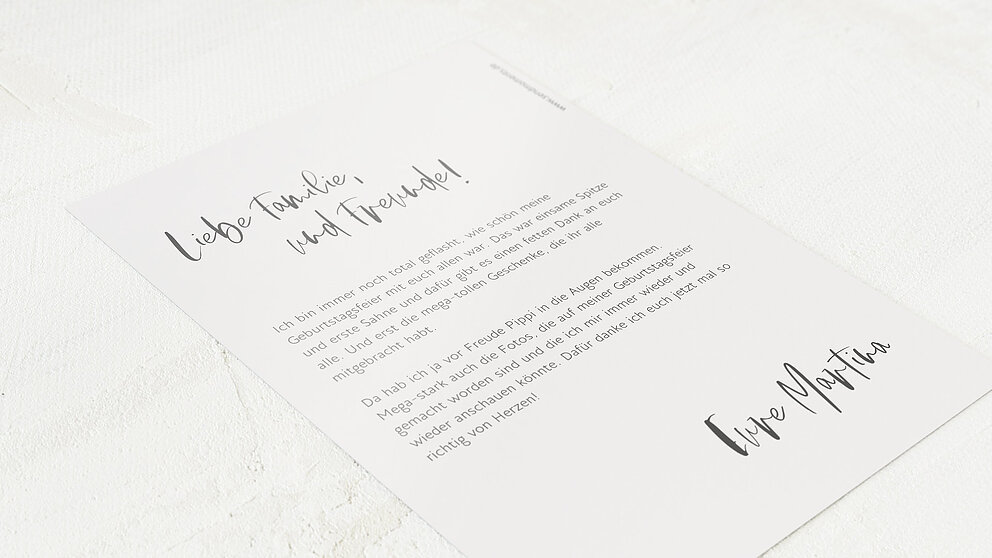 www.sendmoments.de
Liebe Familie,
und Freunde!
Ich bin immer noch total geflasht, wie schön meine
Geburtstagsfeier mit euch allen war. Das war einsame Spitze
und erste Sahne und dafür gibt es einen fetten Dank an euch
alle. Und erst die mega-tollen Geschenke, die ihr alle
mitgebracht habt.
Da hab ich ja vor Freude Pippi in die Augen bekommen.
Mega-stark auch die Fotos, die auf meiner Geburtstagsfeier
gemacht worden sind und die ich mir immer wieder und
wieder anschauen könnte. Dafür danke ich euch jetzt mal so
richtig von Herzen!
Eure Martina